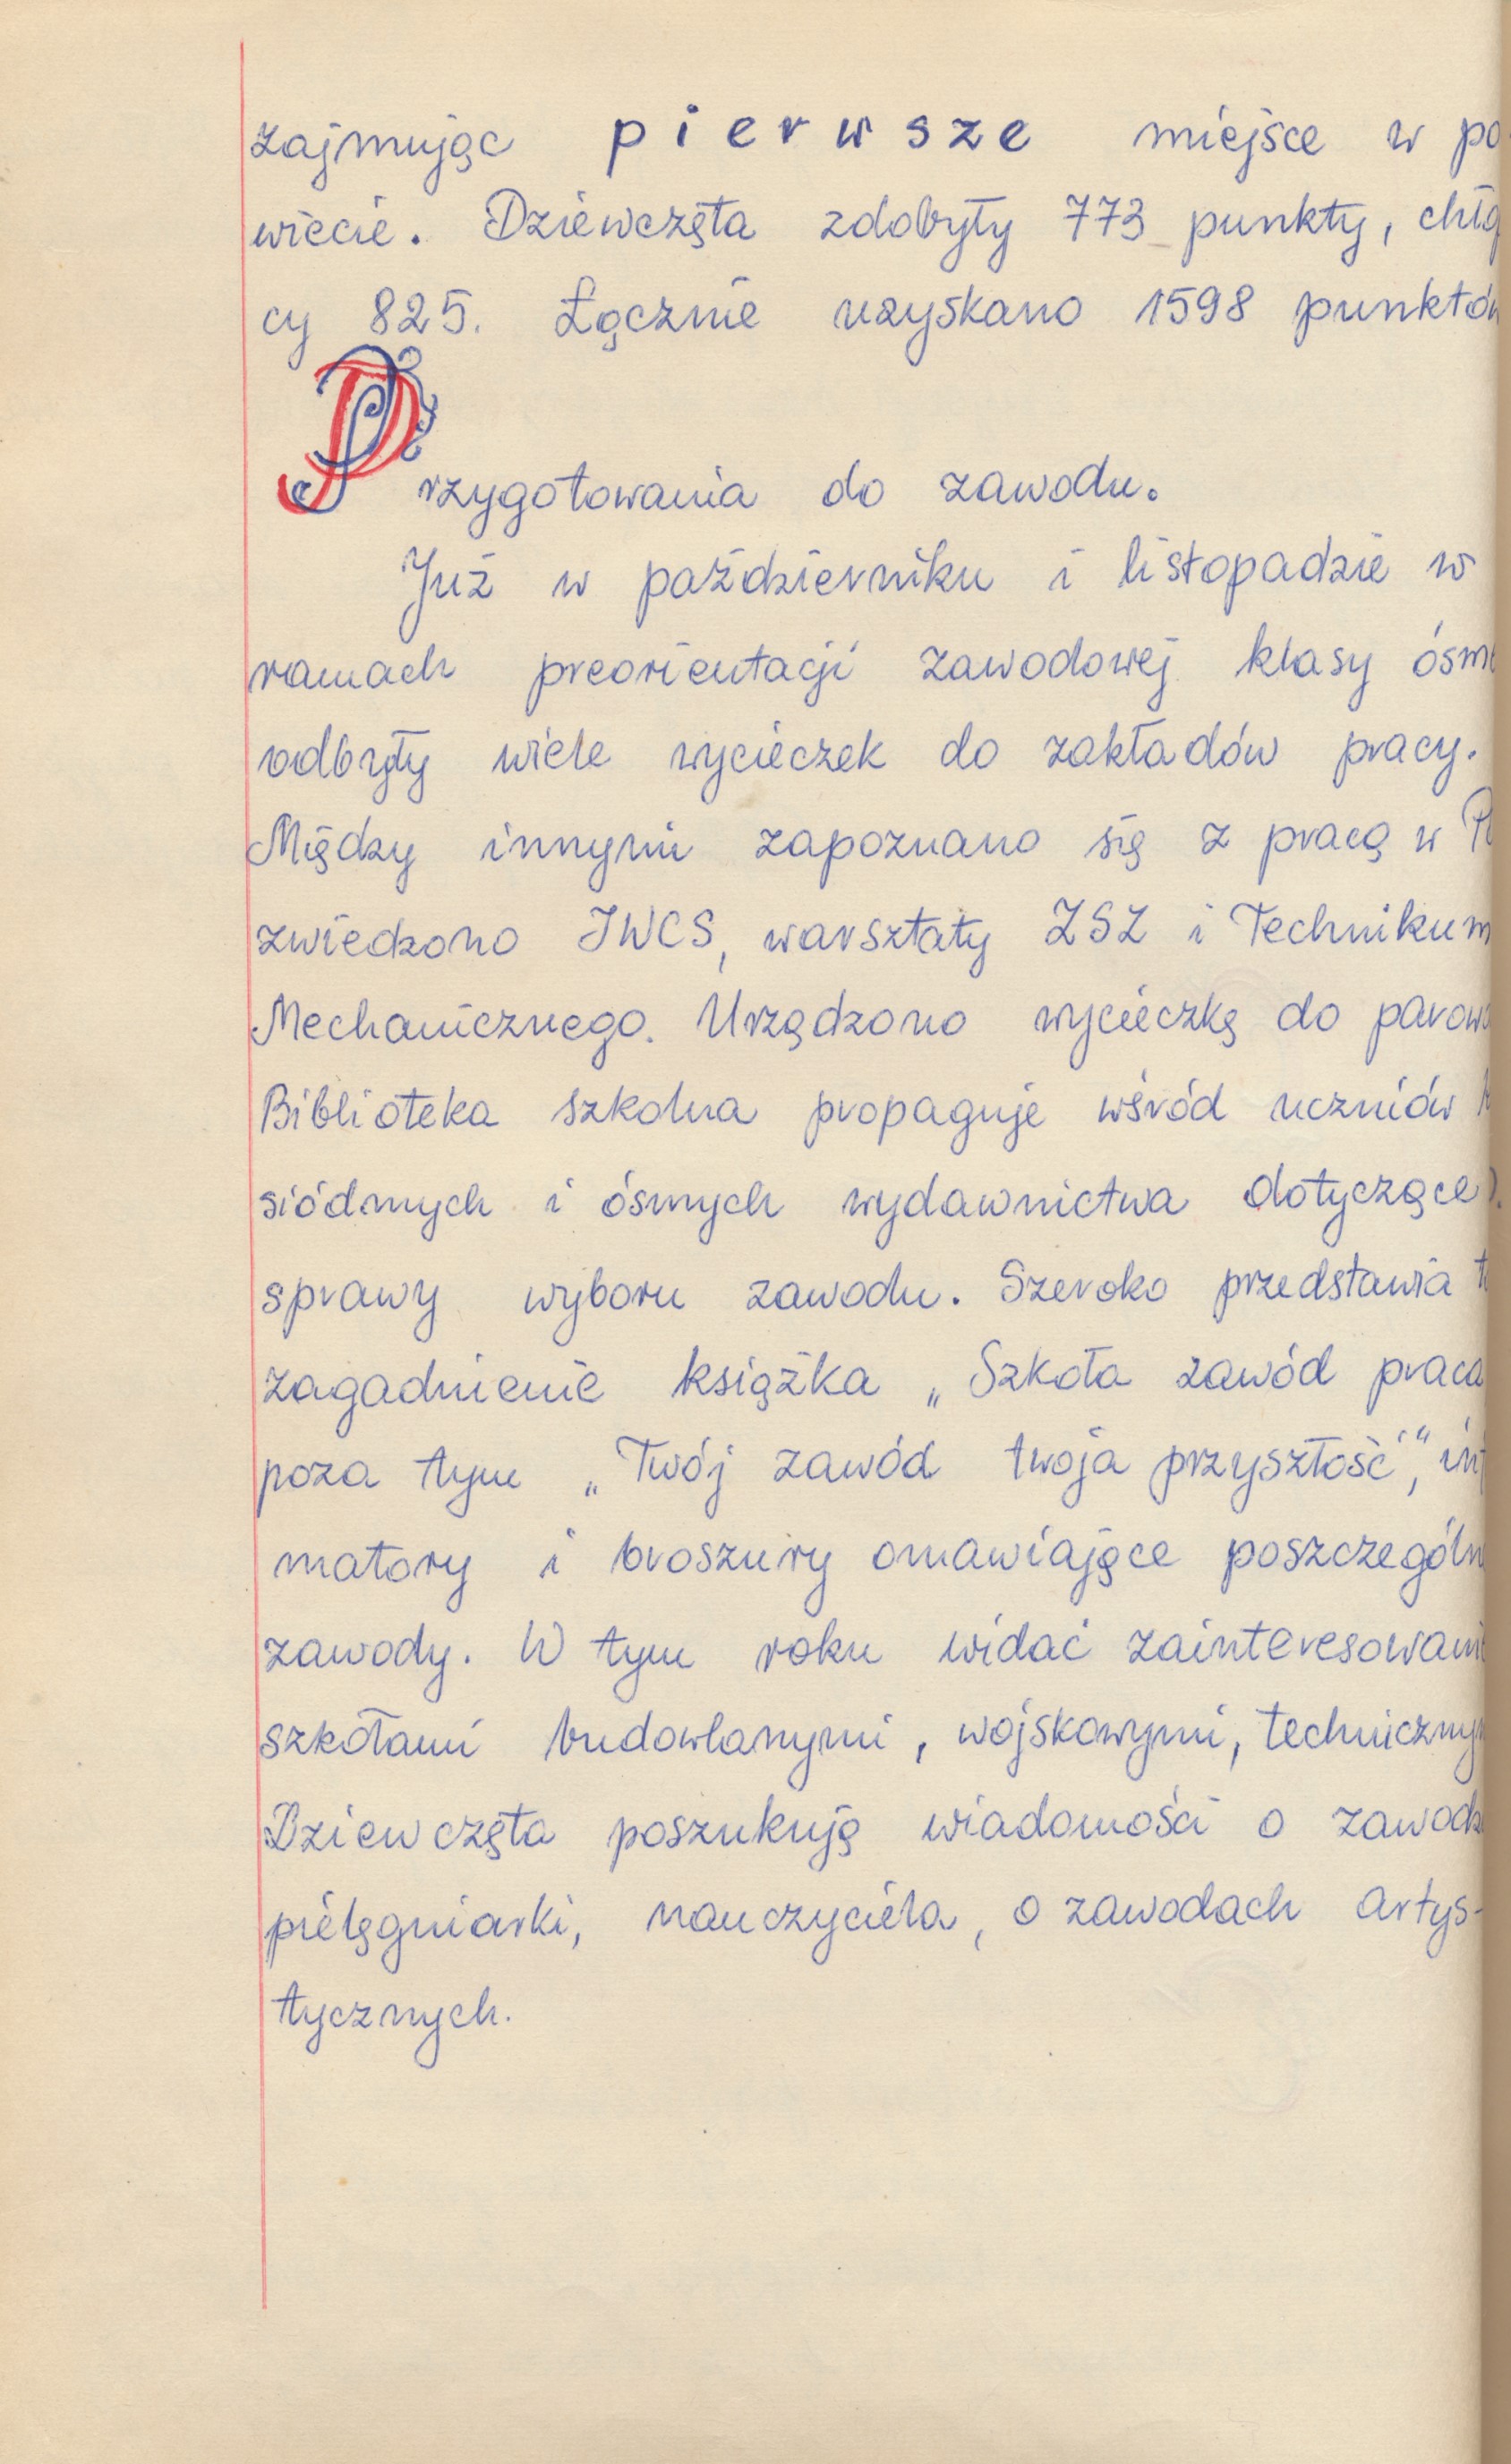 zajmując pierwsze miejsce w po
wiecie. Dziewczęta zdobyły 773 punkty, chło
cy 825. Łącznie uzyskano 1598 punktów
Przygotowania do zawodu.
Już w październiku i listopadzie w
ramach preorientacji zawodowej klasy ósm
odbyły wiele wycieczek do zakładów pracy.
Między innymi zapoznano się z pracą w
zwiedzono JWCS, warsztaty ZSZ i Technikum
Mechanicznego. Urządzono wycieczkę do parow
Biblioteka szkolna propaguje wśród uczniów
siódmych i ósmych wydawnictwa dotyczące
sprawy wyboru zawodu. Szeroko przedstawia t
zagadnienie książka „Szkoła zawód praca
poza tym „Twój zawód twoja przyszłość”, in
matory i broszury omawiające poszczególn
zawody. W tym roku widać zainteresowani
szkołami budowlanymi, wojskowymi, techniczny
Dziewczęta poszukują wiadomości o zawodz
pielęgniarki, nauczyciela, o zawodach artys-
tycznych.